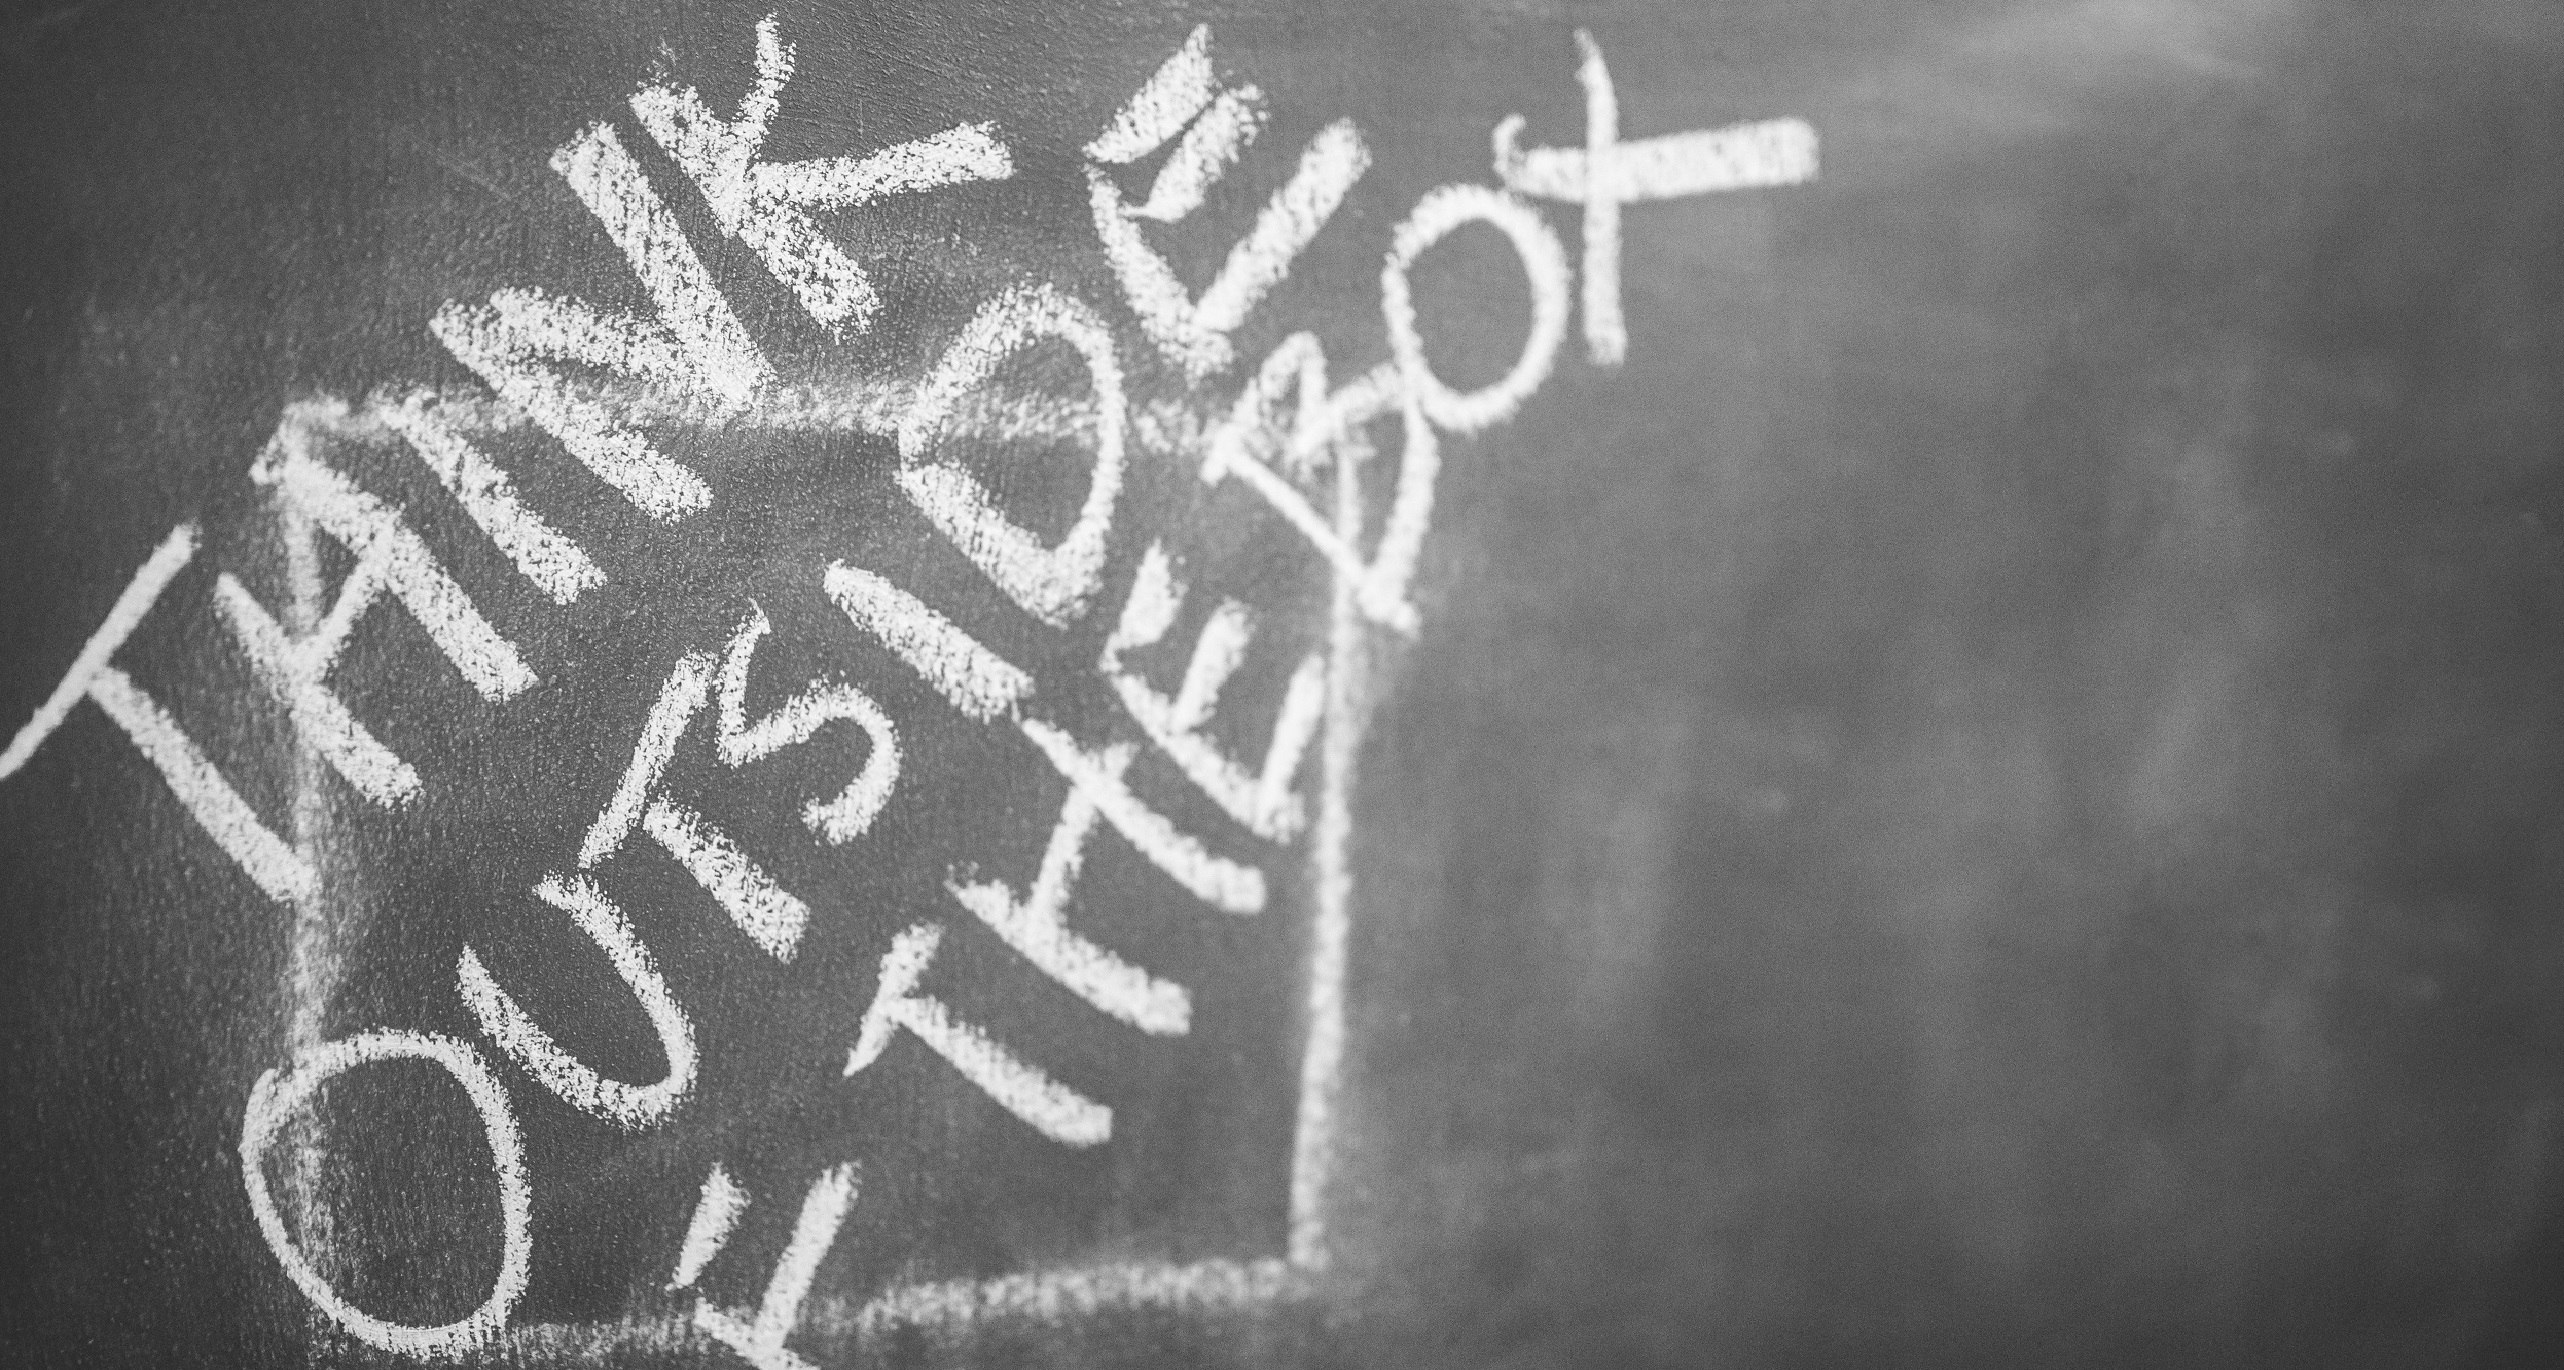 THINK
OUTSIDE
F THE BOX